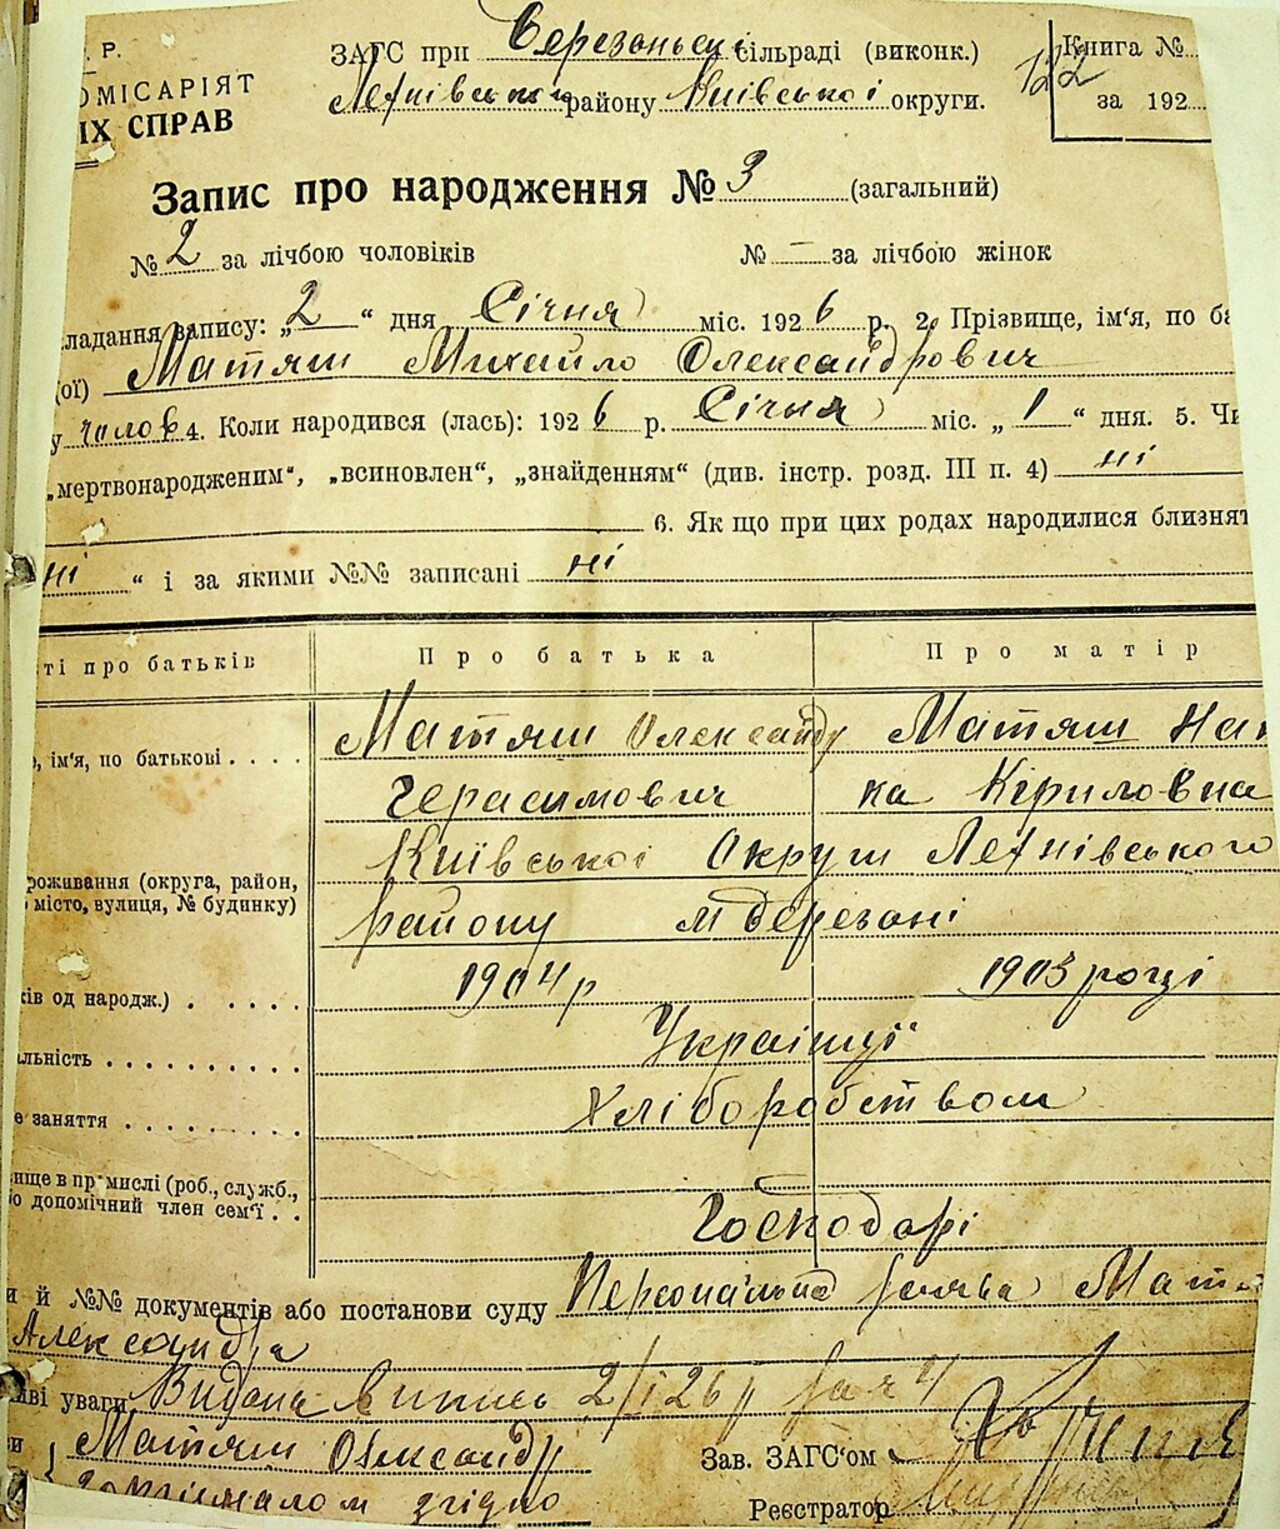 . Р.
ОМІСАРІЯТ
ИХ СПРАВ
ЗАГС при Березоньскі сільраді (виконк.)
району Київської округи.
122
Книга №
за 192
Запис про народження № 3 (загальний)
№ 2 за лічбою чоловіків № — за лічбою жінок
ладання запису: „2“ дня Січня міс. 1926 р. 2. Прізвище, ім'я, по ба
ої) Матяш Михайло Олександрович
у чолов 4. Коли народився (лась): 1926 р. Січня міс. „1“ дня. 5. Чи
„мертвонародженим“, „всиновлен“, „знайденням“ (див. інстр. розд. III п. 4) ні
6. Як що при цих родах народилися близнят
ні “ і за якими №№ записані ні
ті про батьків Про батька Про матір
, ім'я, по батькові . . . . Матяш Олександр Матяш На
Герасимович ка Кіриловна
Київської Округи
роживання (округа, район,
місто, вулиця, № будинку) району м Березані
ків од народж.) . . . . . 1904 р 1903 році
льність . . . . . . . . . . Українці
е заняття . . . . . . . . . Хліборобством
ище в промислі (роб., служб.,
о допомічний член сем'ї . . Господарі
и й №№ документів або постанови суду Персональна заява Мат
Александра
иві уваги Видана випись 2/I 26 р за ч
и Матяш Олександр Зав. ЗАГС'ом
згідно Реєстратор